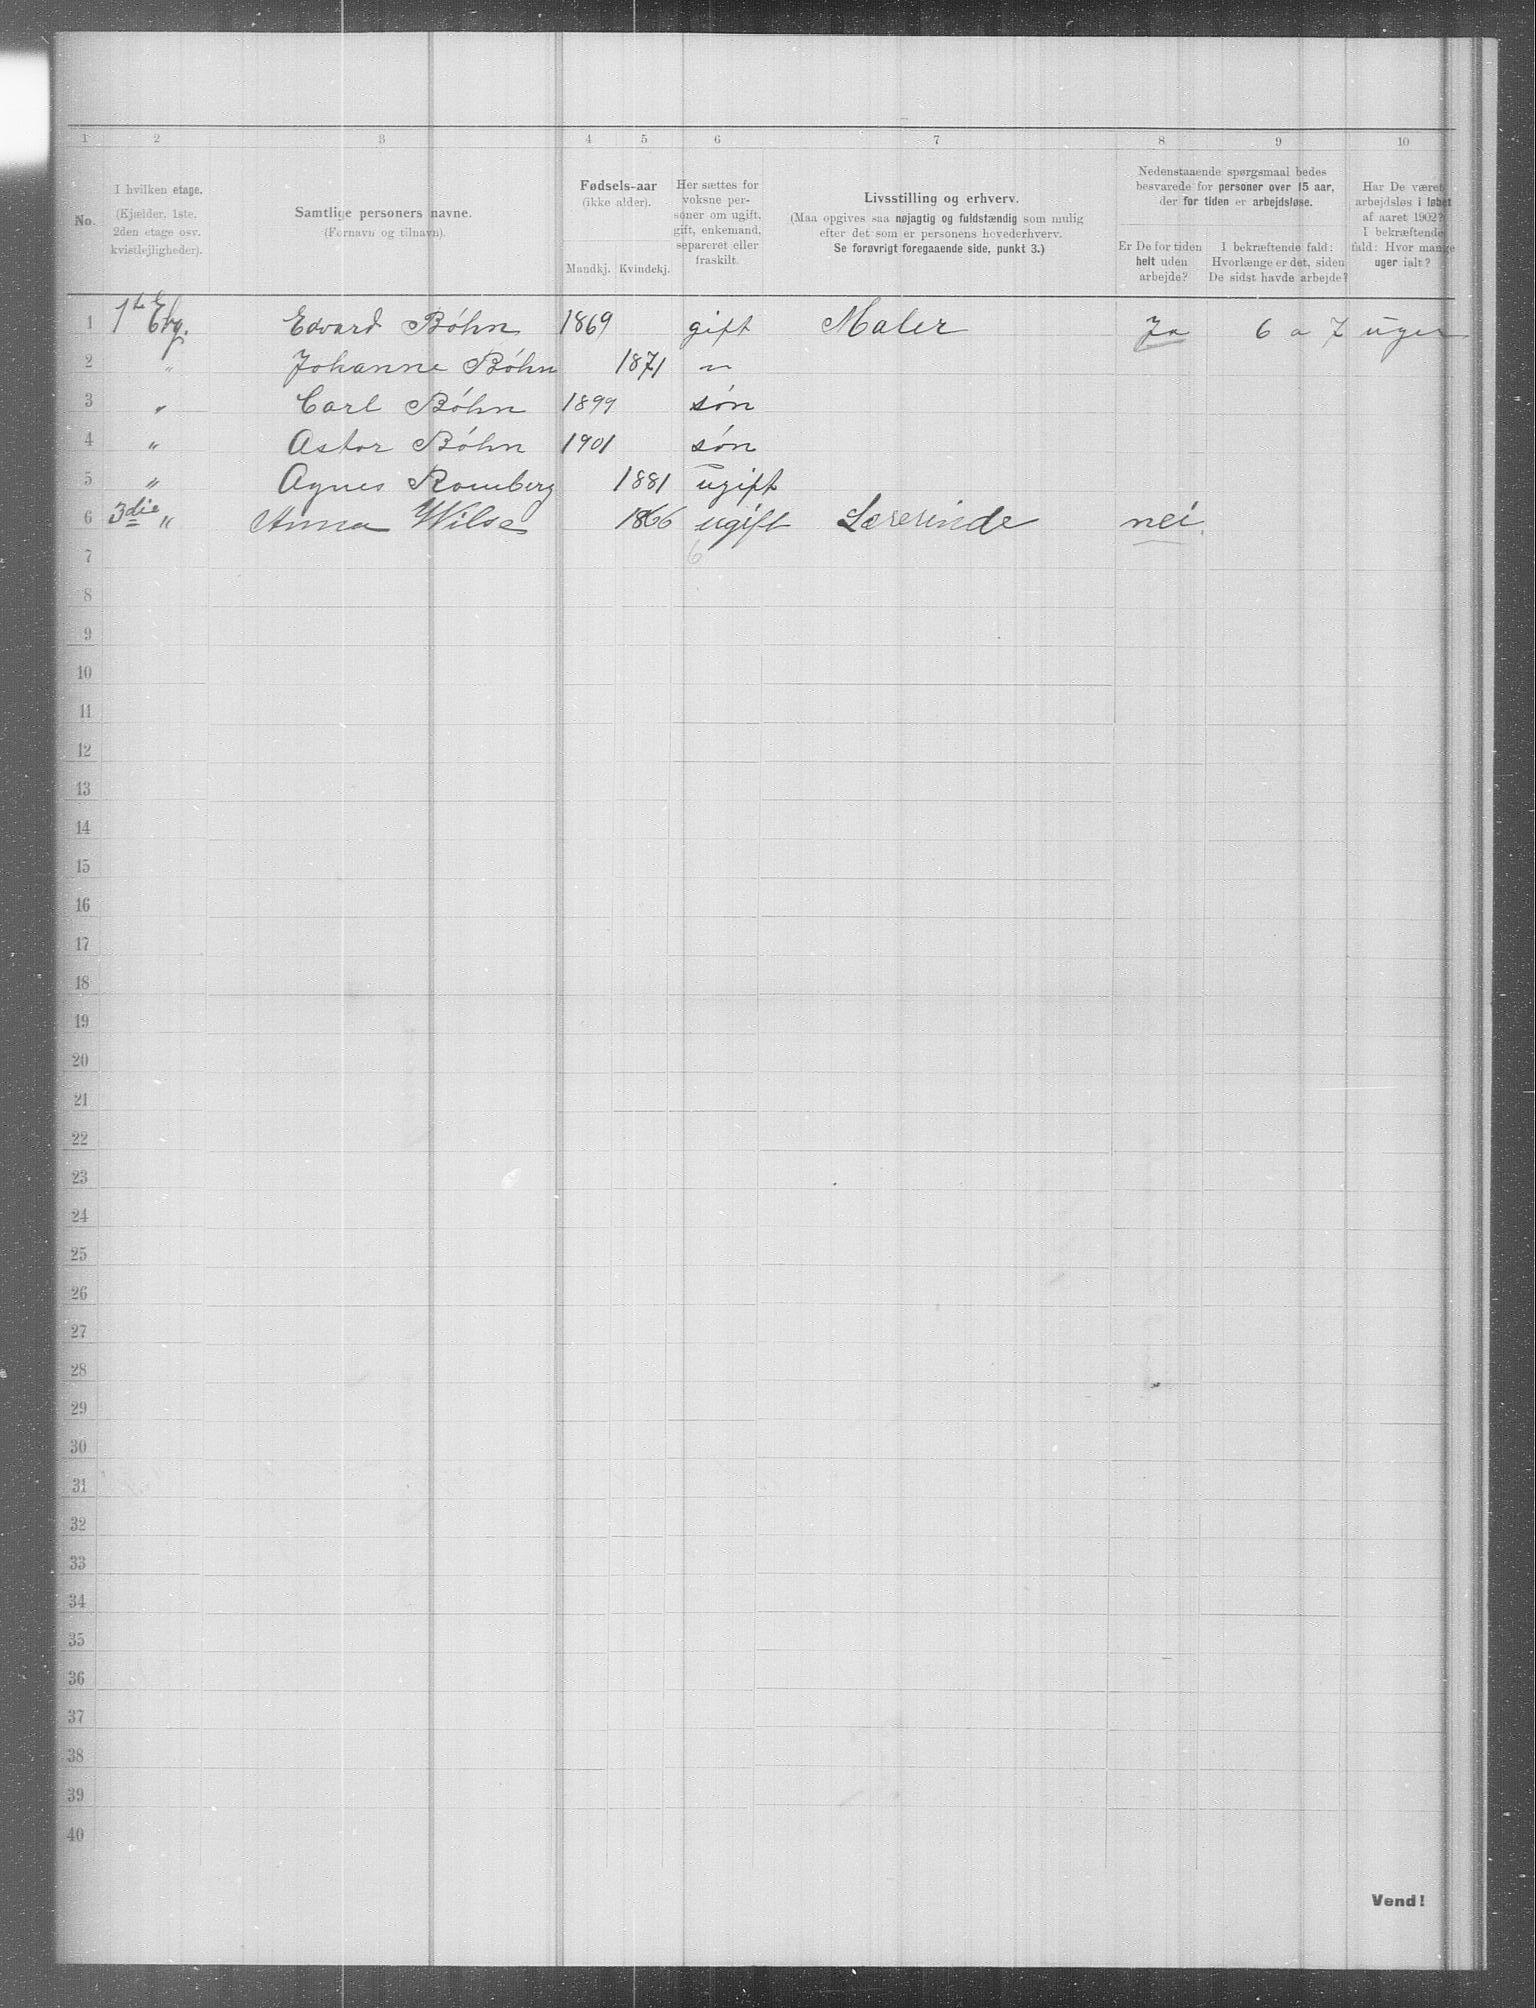 1 2 3 4 5 6 7 8 9 10
No.
I hvilken etage.
(Kjælder, 1ste,
2den etage osv.
kvistlejligheder).
Samtlige personers navne.
(Fornavn og tilnavn).
Fødsels-aar
(ikke alder).
Mandkj. Kvindekj.
Her sættes for
voksne per-
soner om ugift,
gift, enkemand,
separeret eller
fraskilt.
Livsstilling og erhverv.
(Maa opgives saa nøjagtig og fuldstændig som mulig
efter det som er personens hovederhverv.
Se forøvrigt foregaaende side, punkt 3.)
Nedenstaaende spørgsmaal bedes
besvarede for personer over 15 aar,
der for tiden er arbejdsløse.
Er De for tiden
helt uden
arbejde?
I bekræftende fald:
Hvorlænge er det, siden
De sidst havde arbejde?
Har De været
arbejdsløs i løbet
af aaret 1902?
I bekræftende
fald: Hvor mange
uger ialt?
1 Edvard Bøhn 1869 gift Maler Ja 6 a 7 uger
2 " Johanne Bøhn 1871 "
3 " Carl Bøhn 1899 søn
4 " Astor Bøhn 1901 søn
5 " Agnes Romberg 1881 ugift
6 3die " Anna Wilse 1866 ugift Lærerinde nei.
7 6
8
9
10
11
12
13
14
15
16
17
18
19
20
21
22
23
24
25
26
27
28
29
30
31
32
33
34
35
36
37
38
39
40
Vend!